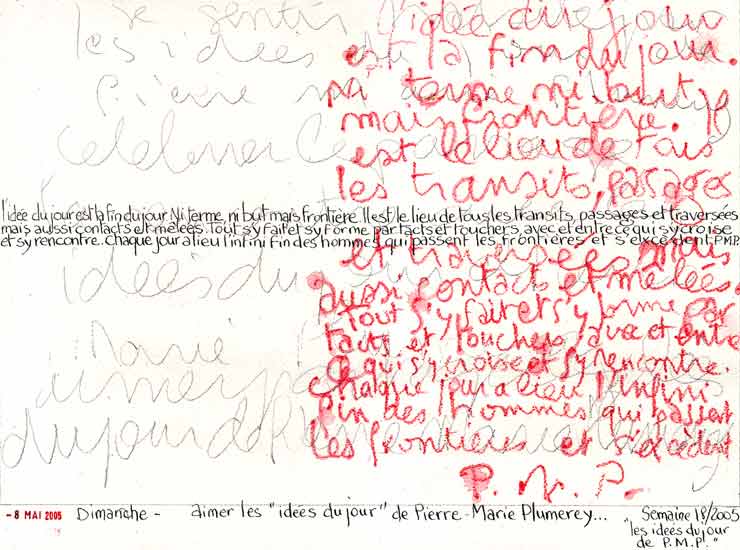 se sentir
les idées
Pierre
célébrer
idées du
Marie
aimer
du jour de
l'idée du jour
est la fin du jour.
ni terme ni but
mais frontière. Il
est le lieu de tous
les transits, passages
l'idée du jour est la fin du jour. Ni terme, ni but mais frontière. Il est le lieu de tous les transits, passages et traversées
mais aussi contacts et mêlées. Tout s'y fait et s'y forme par tacts et touchers, avec et entre ce qui s'y croise
et s'y rencontre. Chaque jour a lieu l'infini fin des hommes qui passent les frontières et s'excèdent. P.M.P.
et traversées mais
aussi contacts et mêlées.
Tout s'y fait et s'y forme par
tacts et touchers, avec et entre
ce qui s'y croise et s'y rencontre.
Chaque jour a lieu l'infini
fin des hommes qui passent
les frontières et s'excèdent
P. M. P.
- 8 MAI 2005 Dimanche - aimer les "idées du jour" de Pierre-Marie Plumerey... Semaine 18/2005
"les idées du jour
de P.M.P."